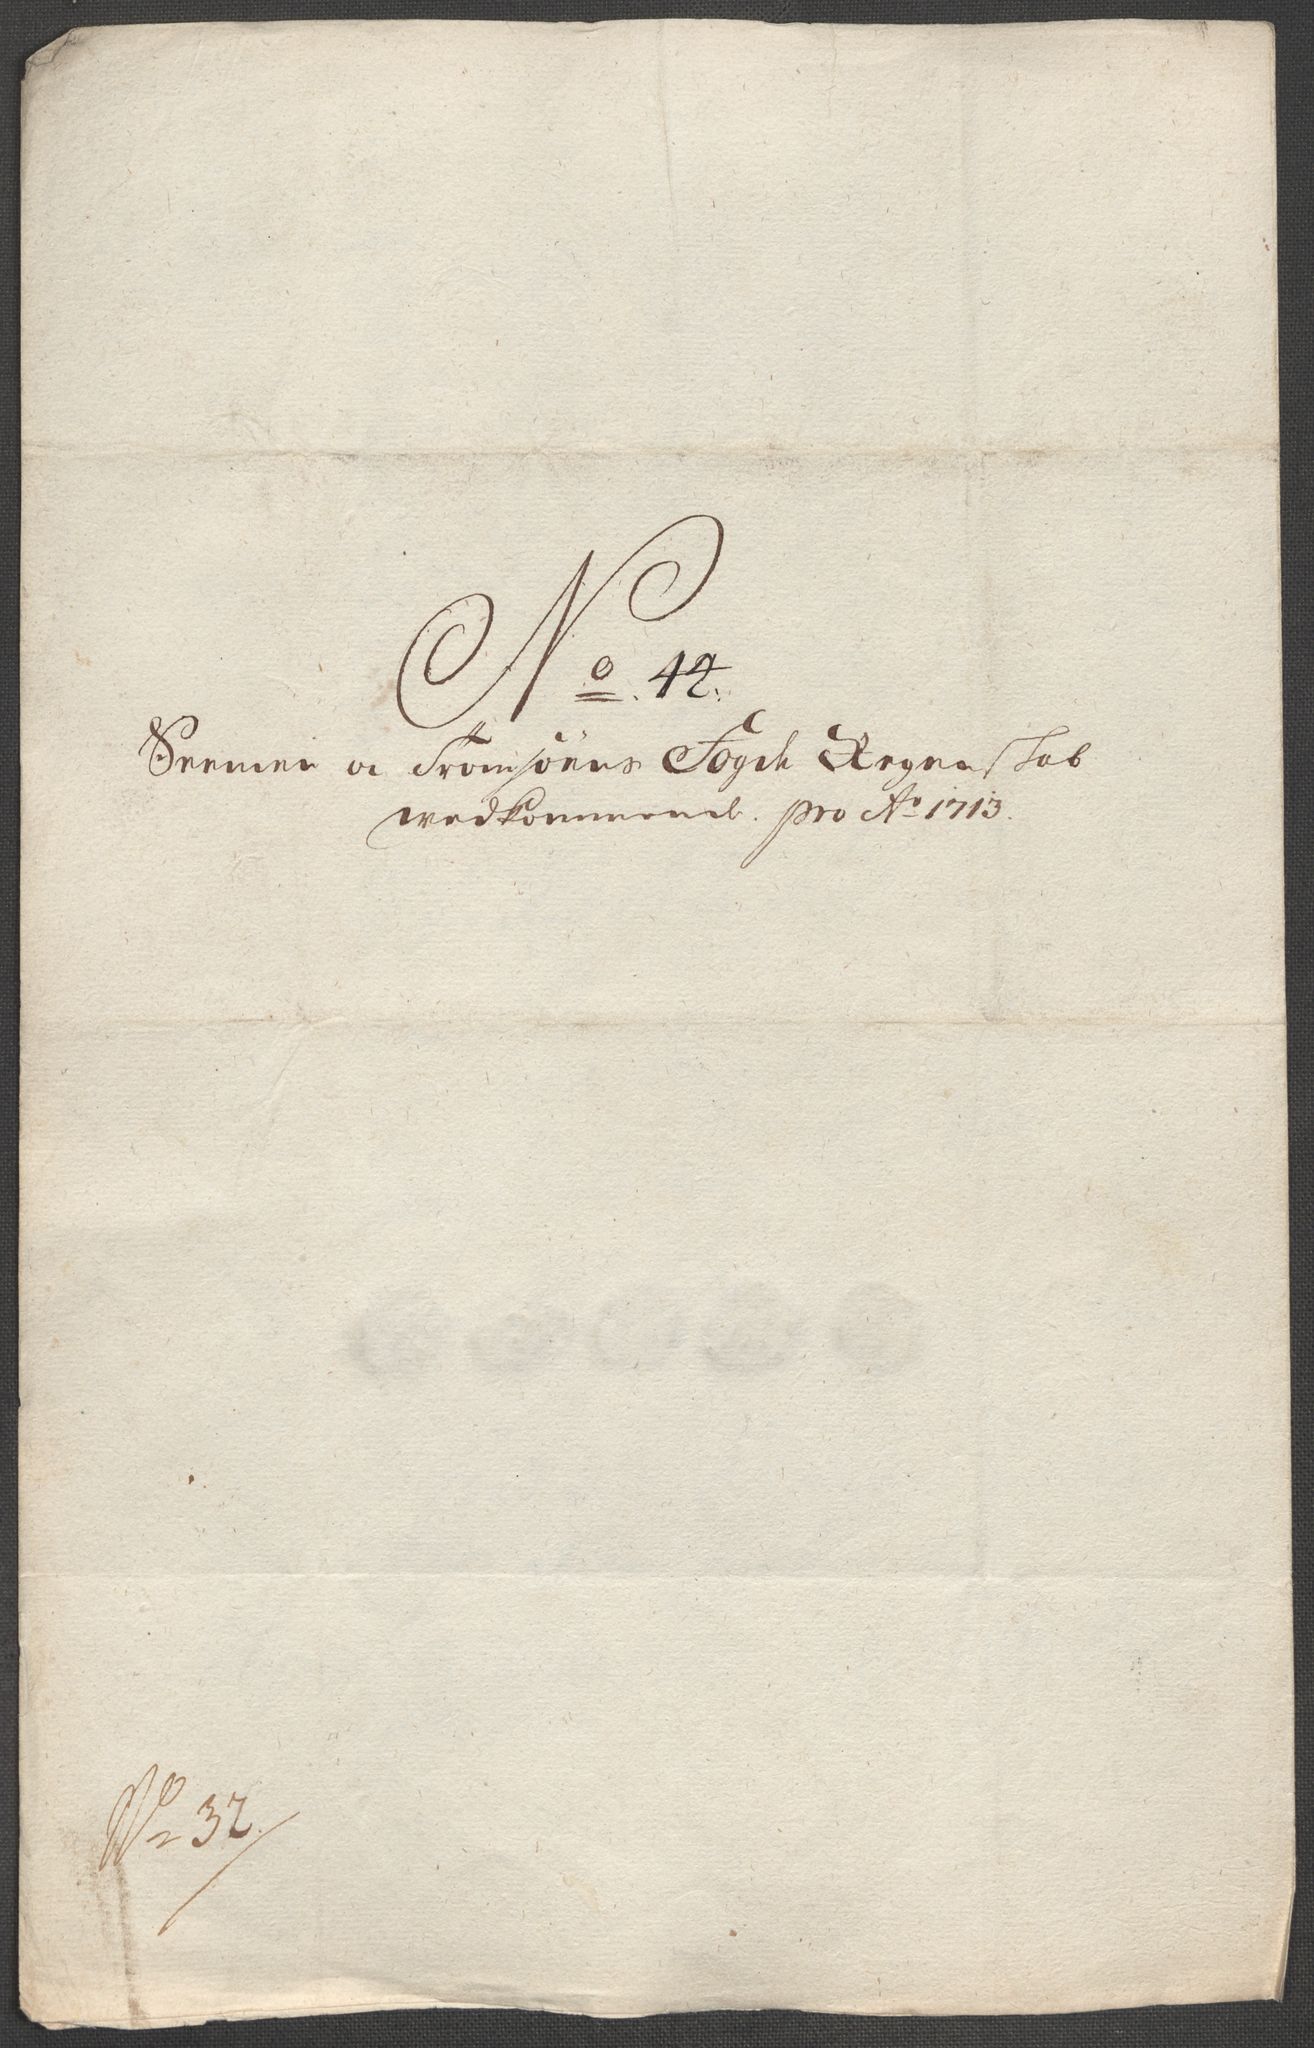 No. 42.
Seenien og Tromsøens Fogd. Regenskab
vedkommende. pro Ao 1713.
No 32.